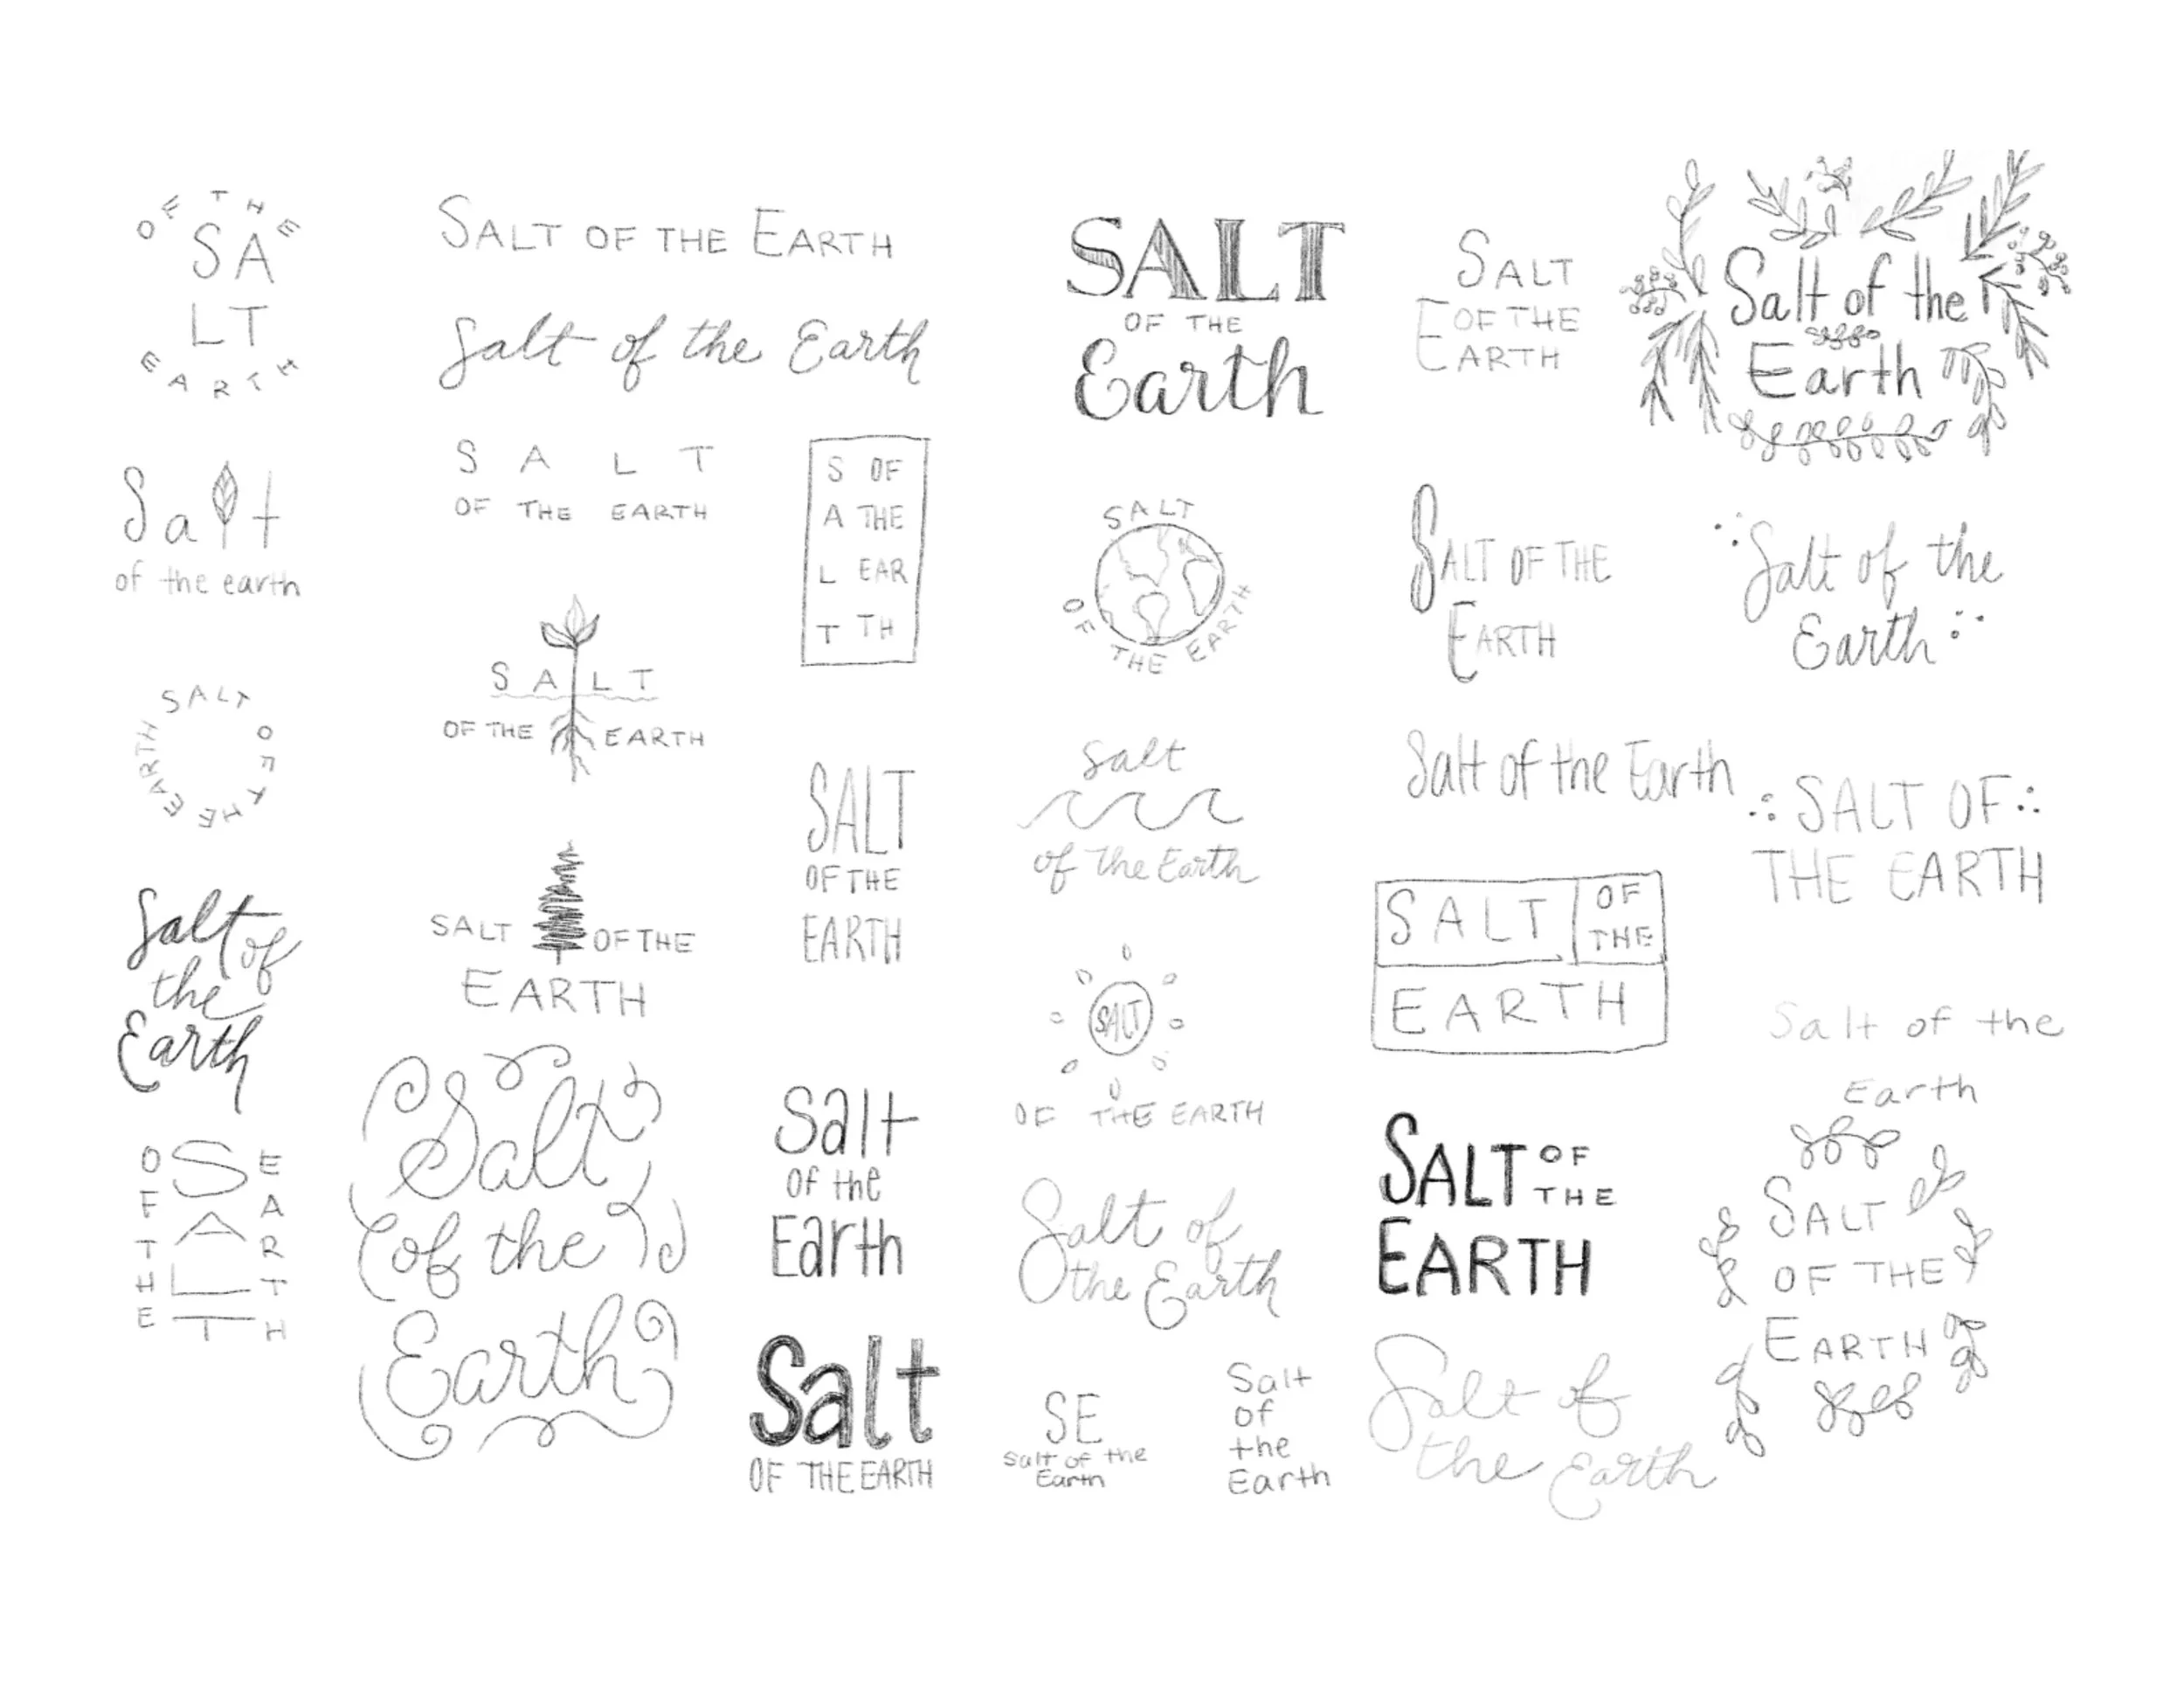 OF THE
SA
LT
EARTH
Salt
of the earth
SALT OF THE EARTH
Salt of
the
Earth
O S E
F A A
T R
H L T
E T H
SALT OF THE EARTH
Salt of the Earth
S A L T
OF THE EARTH
S A L T
OF THE EARTH
SALT OF THE
EARTH
Salt
of the
Earth
S OF
A THE
L EAR
T TH
SALT
OF THE
EARTH
Salt
of the
Earth
Salt
OF THE EARTH
SALT
OF THE
Earth
SALT
OF THE EARTH
Salt
of the Earth
SALT
OF THE EARTH
Salt of
the Earth
SE
Salt of the
Earth
Salt
of
the
Earth
SALT
OF THE
EARTH
SALT OF THE
EARTH
Salt of the Earth
SALT OF
THE
EARTH
SALT OF
THE
EARTH
Salt of
the Earth
Salt of the
Earth
Salt of the
Earth
SALT OF
THE EARTH
Salt of the
Earth
SALT
OF THE
EARTH